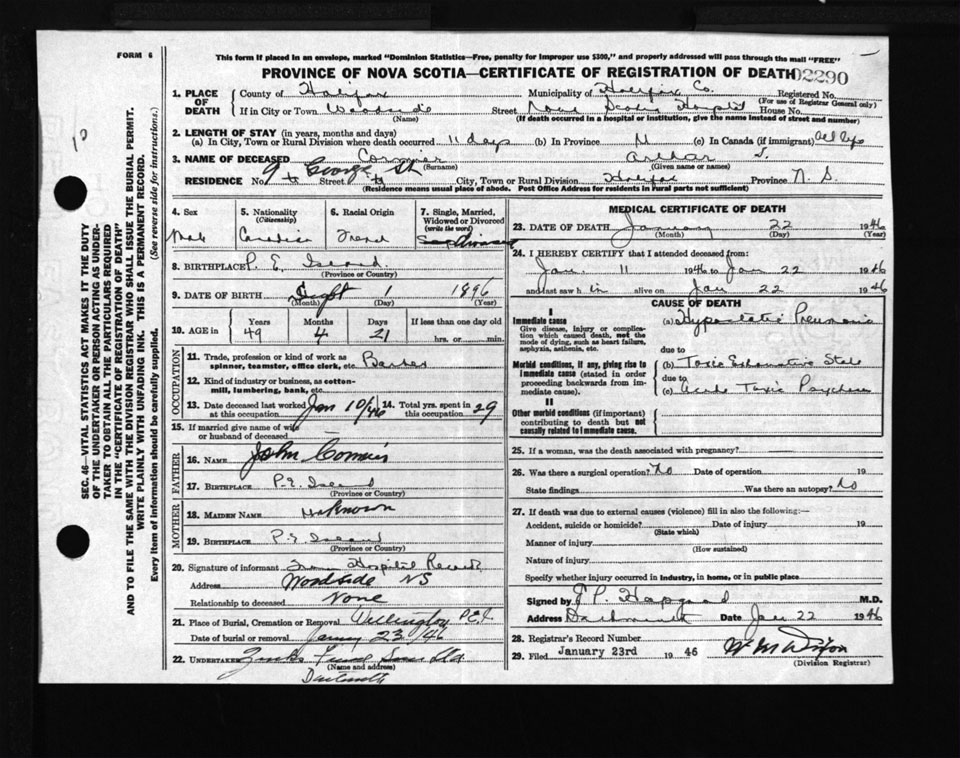 FORM 6
This form if placed in an envelope, marked "Dominion Statistics—Free, penalty for improper use $300," and properly addressed will pass through the mail "FREE"
PROVINCE OF NOVA SCOTIA—CERTIFICATE OF REGISTRATION OF DEATH 02290
1. PLACE OF DEATH County of Halifax Municipality of Halifax Co. Registered No.
(For use of Registrar General only)
If in City or Town Woodside Street Nova Scotia Hospital House No.
(Name) (If death occurred in a hospital or institution, give the name instead of street and number)
2. LENGTH OF STAY (in years, months and days)
(a) In City, Town or Rural Division where death occurred 11 days (b) In Province (c) In Canada (if immigrant) All life
3. NAME OF DECEASED Cormier Arthur J.
(Surname) (Given name or names)
RESIDENCE No. 9 George St Street City, Town or Rural Division Halifax Province N. S.
(Residence means usual place of abode. Post Office Address for residents in rural parts not sufficient)
4. Sex
Male
5. Nationality
(Citizenship)
Canadian
6. Racial Origin
French
7. Single, Married, Widowed or Divorced
(write the word)
Divorced
8. BIRTHPLACE P. E. Island
(Province or Country)
9. DATE OF BIRTH Sept 1 1896
(Month) (Day) (Year)
10. AGE in Years Months Days If less than one day old
49 4 21 hrs. or min.
OCCUPATION
11. Trade, profession or kind of work as spinner, teamster, office clerk, etc. Barber
12. Kind of industry or business, as cotton-mill, lumbering, bank, etc.
13. Date deceased last worked at this occupation Jan 10/46
14. Total yrs. spent in this occupation 29
15. If married give name of wife or husband of deceased
FATHER
16. NAME John Cormier
17. BIRTHPLACE P. E. Island
(Province or Country)
MOTHER
18. MAIDEN NAME Unknown
19. BIRTHPLACE P. E. Island
(Province or Country)
20. Signature of informant From Hospital Records
Address Woodside NS
Relationship to deceased None
21. Place of Burial, Cremation or Removal Wellington P.E.I.
Date of burial or removal January 23/46
22. UNDERTAKER
(Name and address)
Dartmouth
MEDICAL CERTIFICATE OF DEATH
23. DATE OF DEATH January 22 1946
(Month) (Day) (Year)
24. I HEREBY CERTIFY that I attended deceased from:
Jan. 11 1946 to Jan 22 1946
and last saw him alive on Jan 22 1946
CAUSE OF DEATH
I
Immediate cause (a) Hypostatic Pneumonia
Give disease, injury or complication which caused death, not the mode of dying, such as heart failure, asphyxia, asthenia, etc.
due to
Morbid conditions, if any, giving rise to immediate cause (stated in order proceeding backwards from immediate cause).
(b) Toxic Exhaustive State
due to
(c) Acute Toxic Psychosis
II
Other morbid conditions (if important) contributing to death but not causally related to immediate cause.
25. If a woman, was the death associated with pregnancy?
26. Was there a surgical operation? No Date of operation 19
State findings Was there an autopsy? No
27. If death was due to external causes (violence) fill in also the following:—
Accident, suicide or homicide? Date of injury 19
(State which)
Manner of injury
(How sustained)
Nature of injury
Specify whether injury occurred in industry, in home, or in public place
Signed by E P. Hapgood M.D.
Address Dartmouth Date Jan 22 1946
28. Registrar's Record Number
29. Filed January 23rd 1946
(Division Registrar)
SEC. 46—VITAL STATISTICS ACT MAKES IT THE DUTY
OF THE UNDERTAKER OR PERSON ACTING AS UNDER-
TAKER TO OBTAIN ALL THE PARTICULARS REQUIRED
IN THE "CERTIFICATE OF REGISTRATION OF DEATH"
AND TO FILE THE SAME WITH THE DIVISION REGISTRAR WHO SHALL ISSUE THE BURIAL PERMIT.
WRITE PLAINLY WITH UNFADING INK. THIS IS A PERMANENT RECORD.
Every item of information should be carefully supplied. (See reverse side for instructions.)